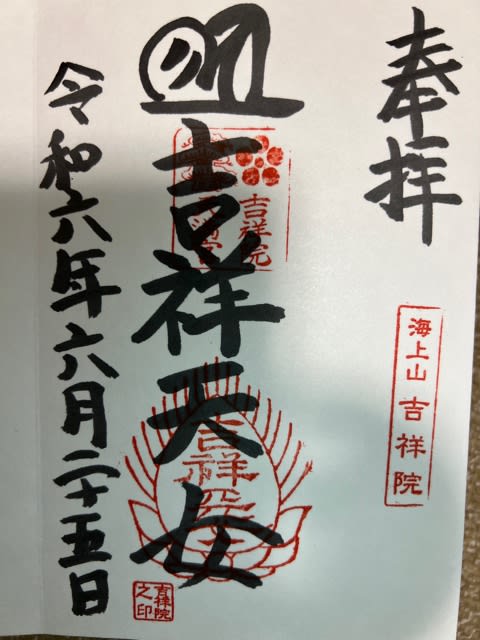 奉拝
海上山 吉祥院
吉祥院
吉祥天女
吉祥院之印
令和六年六月二十五日